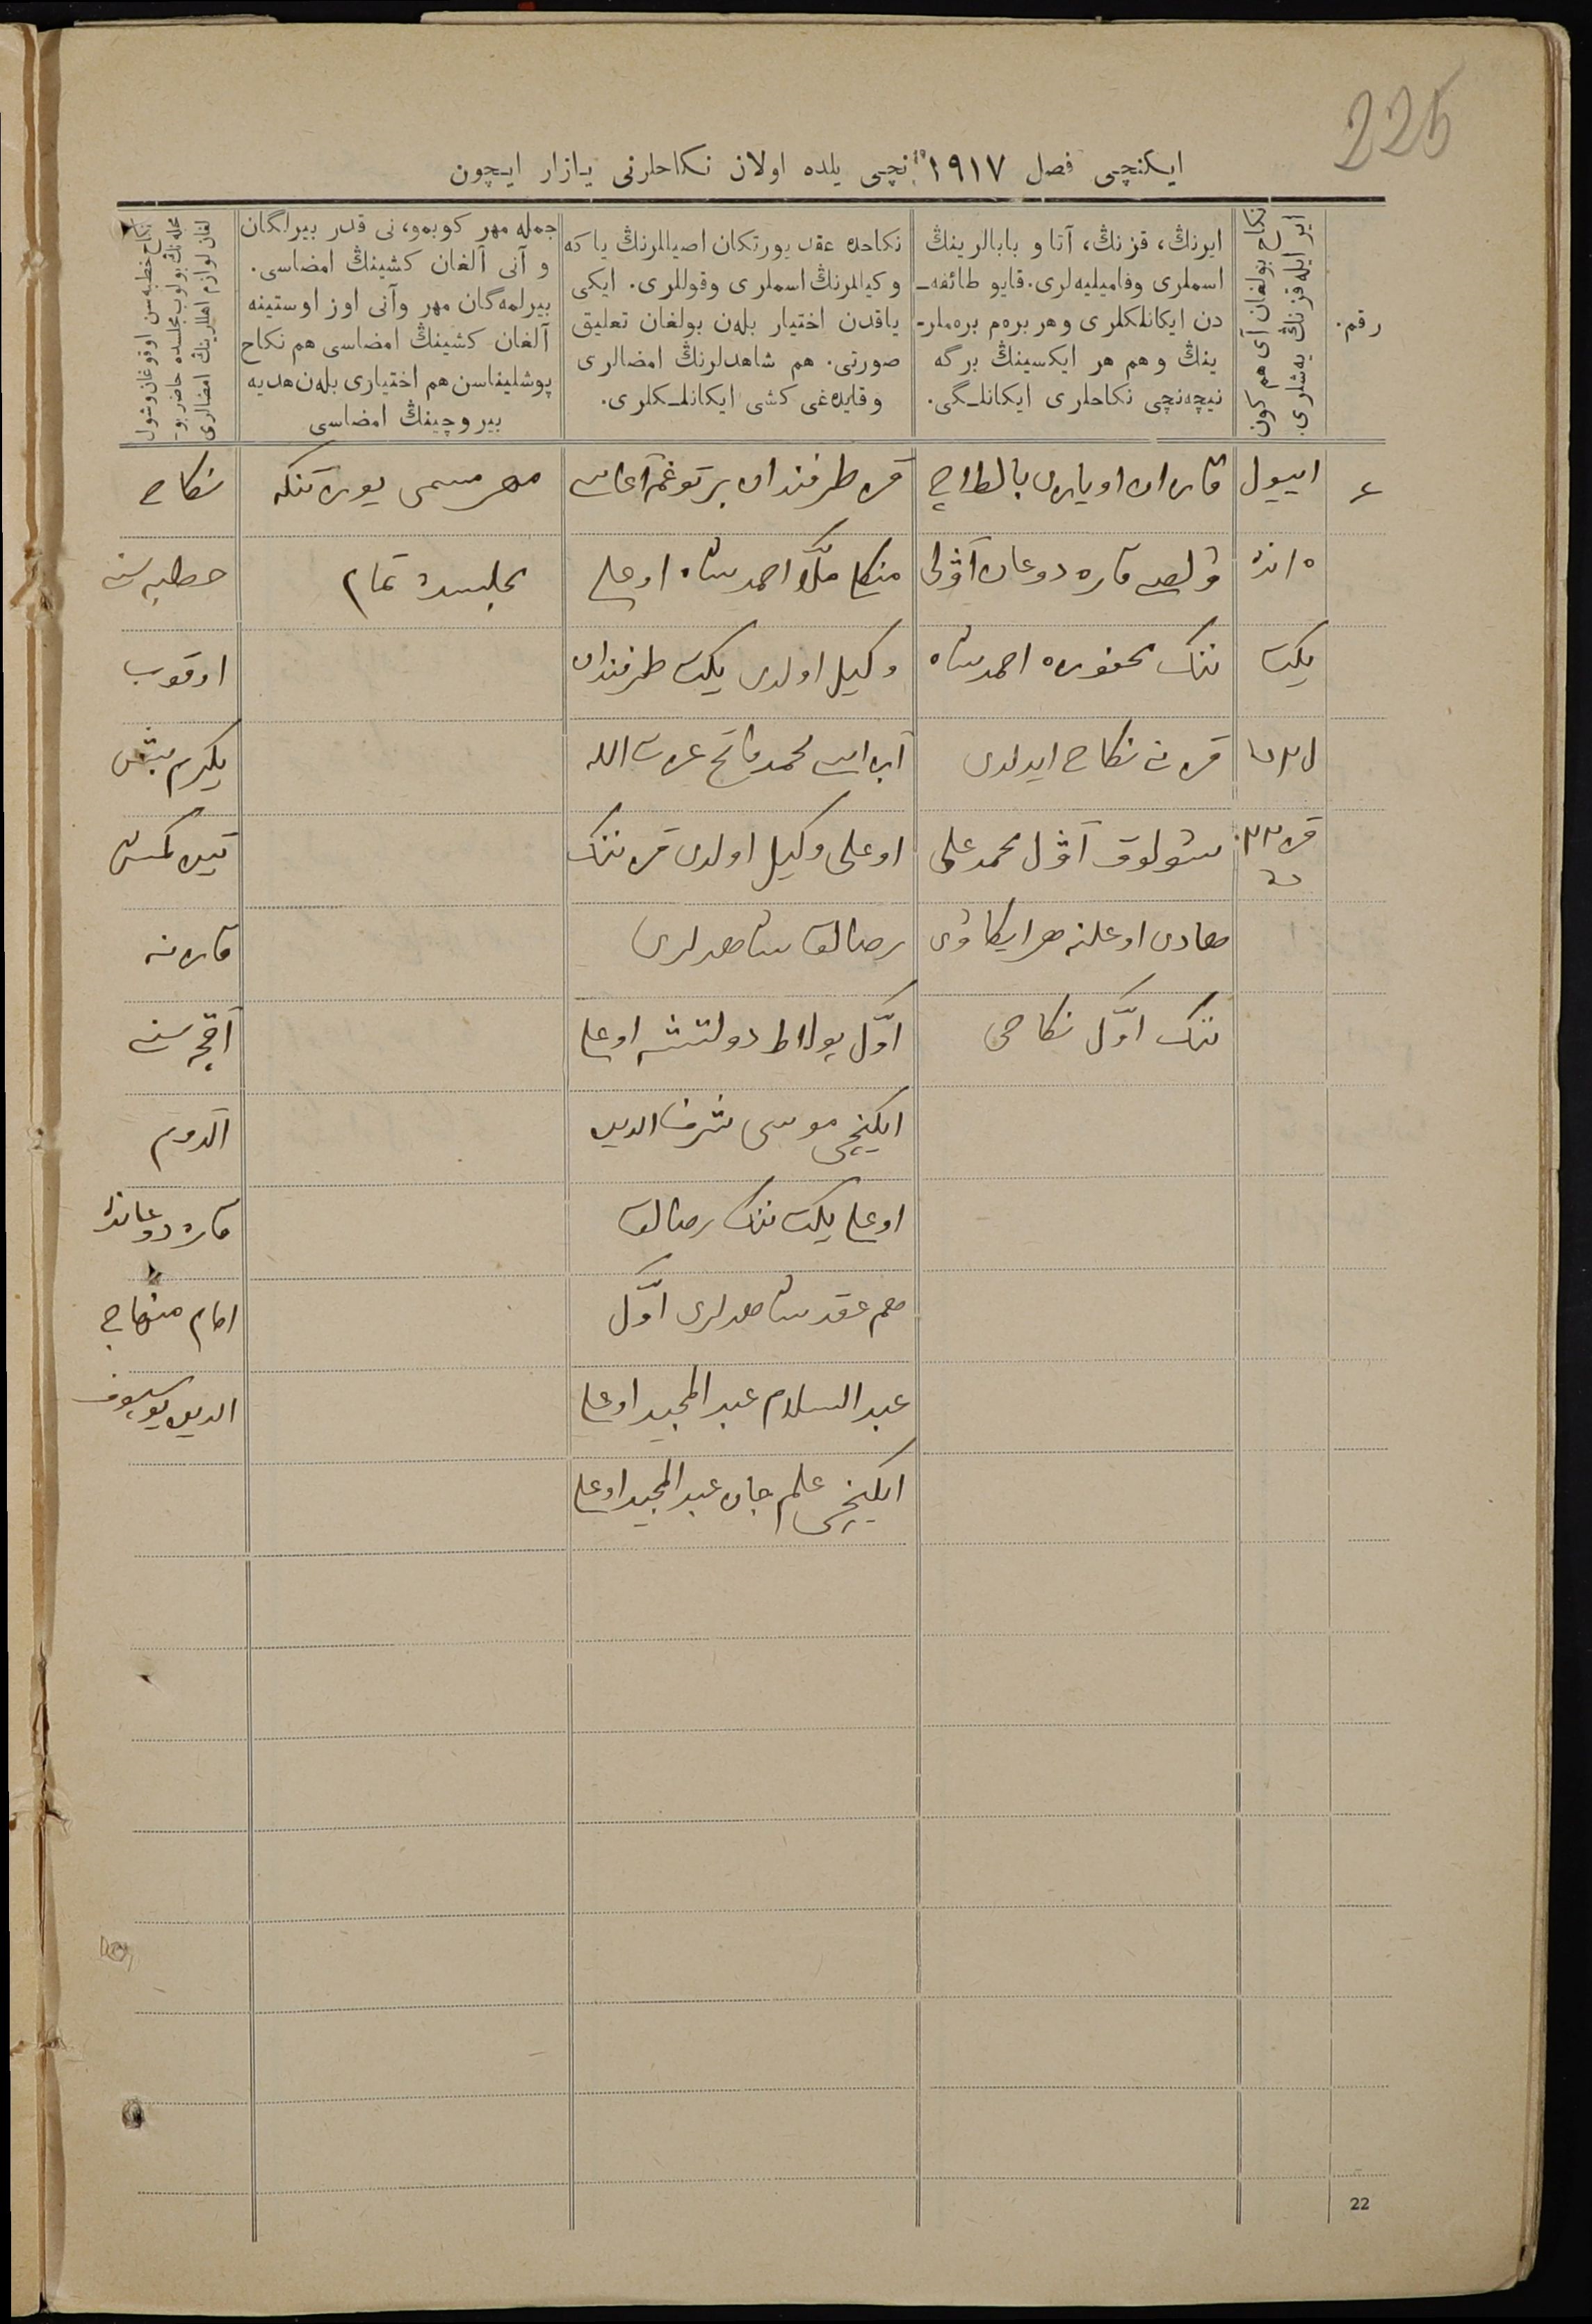 225
ایکنچی فصل ١٩١٧ نچی یلده اولان نکاحلرنی یازار ایچون
رقم.
نکاح بولغان آی هم کون
ایر ایله قزنڭ یه‌شلری.
ایرنڭ، قزنڭ، آتا و بابالرینڭ
اسملری وفامیلیه‌لری. قایو طائفه‌ـ
دن ایکانلکلری و هر بره‌م بره‌ملرـ
ینڭ و هم هر ایکسینڭ برگه
نیچه‌نچی نکاحلری ایکانلـگی.
نکاحده عقد یورتکان اصیللرنڭ یا که
وکیللرنڭ اسملری وقوللری. ایکی
یاقدن اختیار بله‌ن بولغان تعلیق
صورتی. هم شاهدلرنڭ امضالری
و قایده‌غی کشی ایکانلـکلری.
جمله مهر کوبمو، نی قدر بیرلگان
و آنی آلغان کشینڭ امضاسی.
بیرلمه‌گان مهر وآنی اوز اوستینه
آلغان کشینڭ امضاسی هم نکاح
پوشلیناسن هم اختیاری بله‌ن هدیه
بیروچینڭ امضاسی
نکاح خطبه‌سن اوقوغان وشول
مجلسده حاضر بوـ
لغان لوازم اهللرینڭ امضالری
٤
اییول
١٥ نده
یکت
قز ٢٢
قزان اویازی بالطاچ
ولصی قاره دوغان آولی
ننک احمدشاه
قزی نکاح ایدلدی
آول محمدعلی
هادی اوغلنه هر ایکاوی
ننک اوّل نکاحی
قز طرفندان بر توغمه آغاسی
احمدشاه اوغلی
وکیل اولدی یکت طرفندان
آتاسی محمدفاتح عزت الله
اوغلی وکیل اولدی قزننک
رضالق شاهدلری
اوّل پولاط دولتشه اوغلی
ایکنچی موسی شرف الدین
اوغلی یکت ننک رضالق
هم عقد شاهدلری اوّل
عبد السلام عبد المجید اوغلی
ایکنچی علم جان عبد المجید اوغلی
مهر مسمی یوز تنکه
مجلسده تمام
نکاح
خطبه سنی
اوقوب
یکرمی بش
تین کمش
قازنه
آقچه سنی
آلدوم
قاره دوغانده
امام منهاج
الدین یوسپوف
22